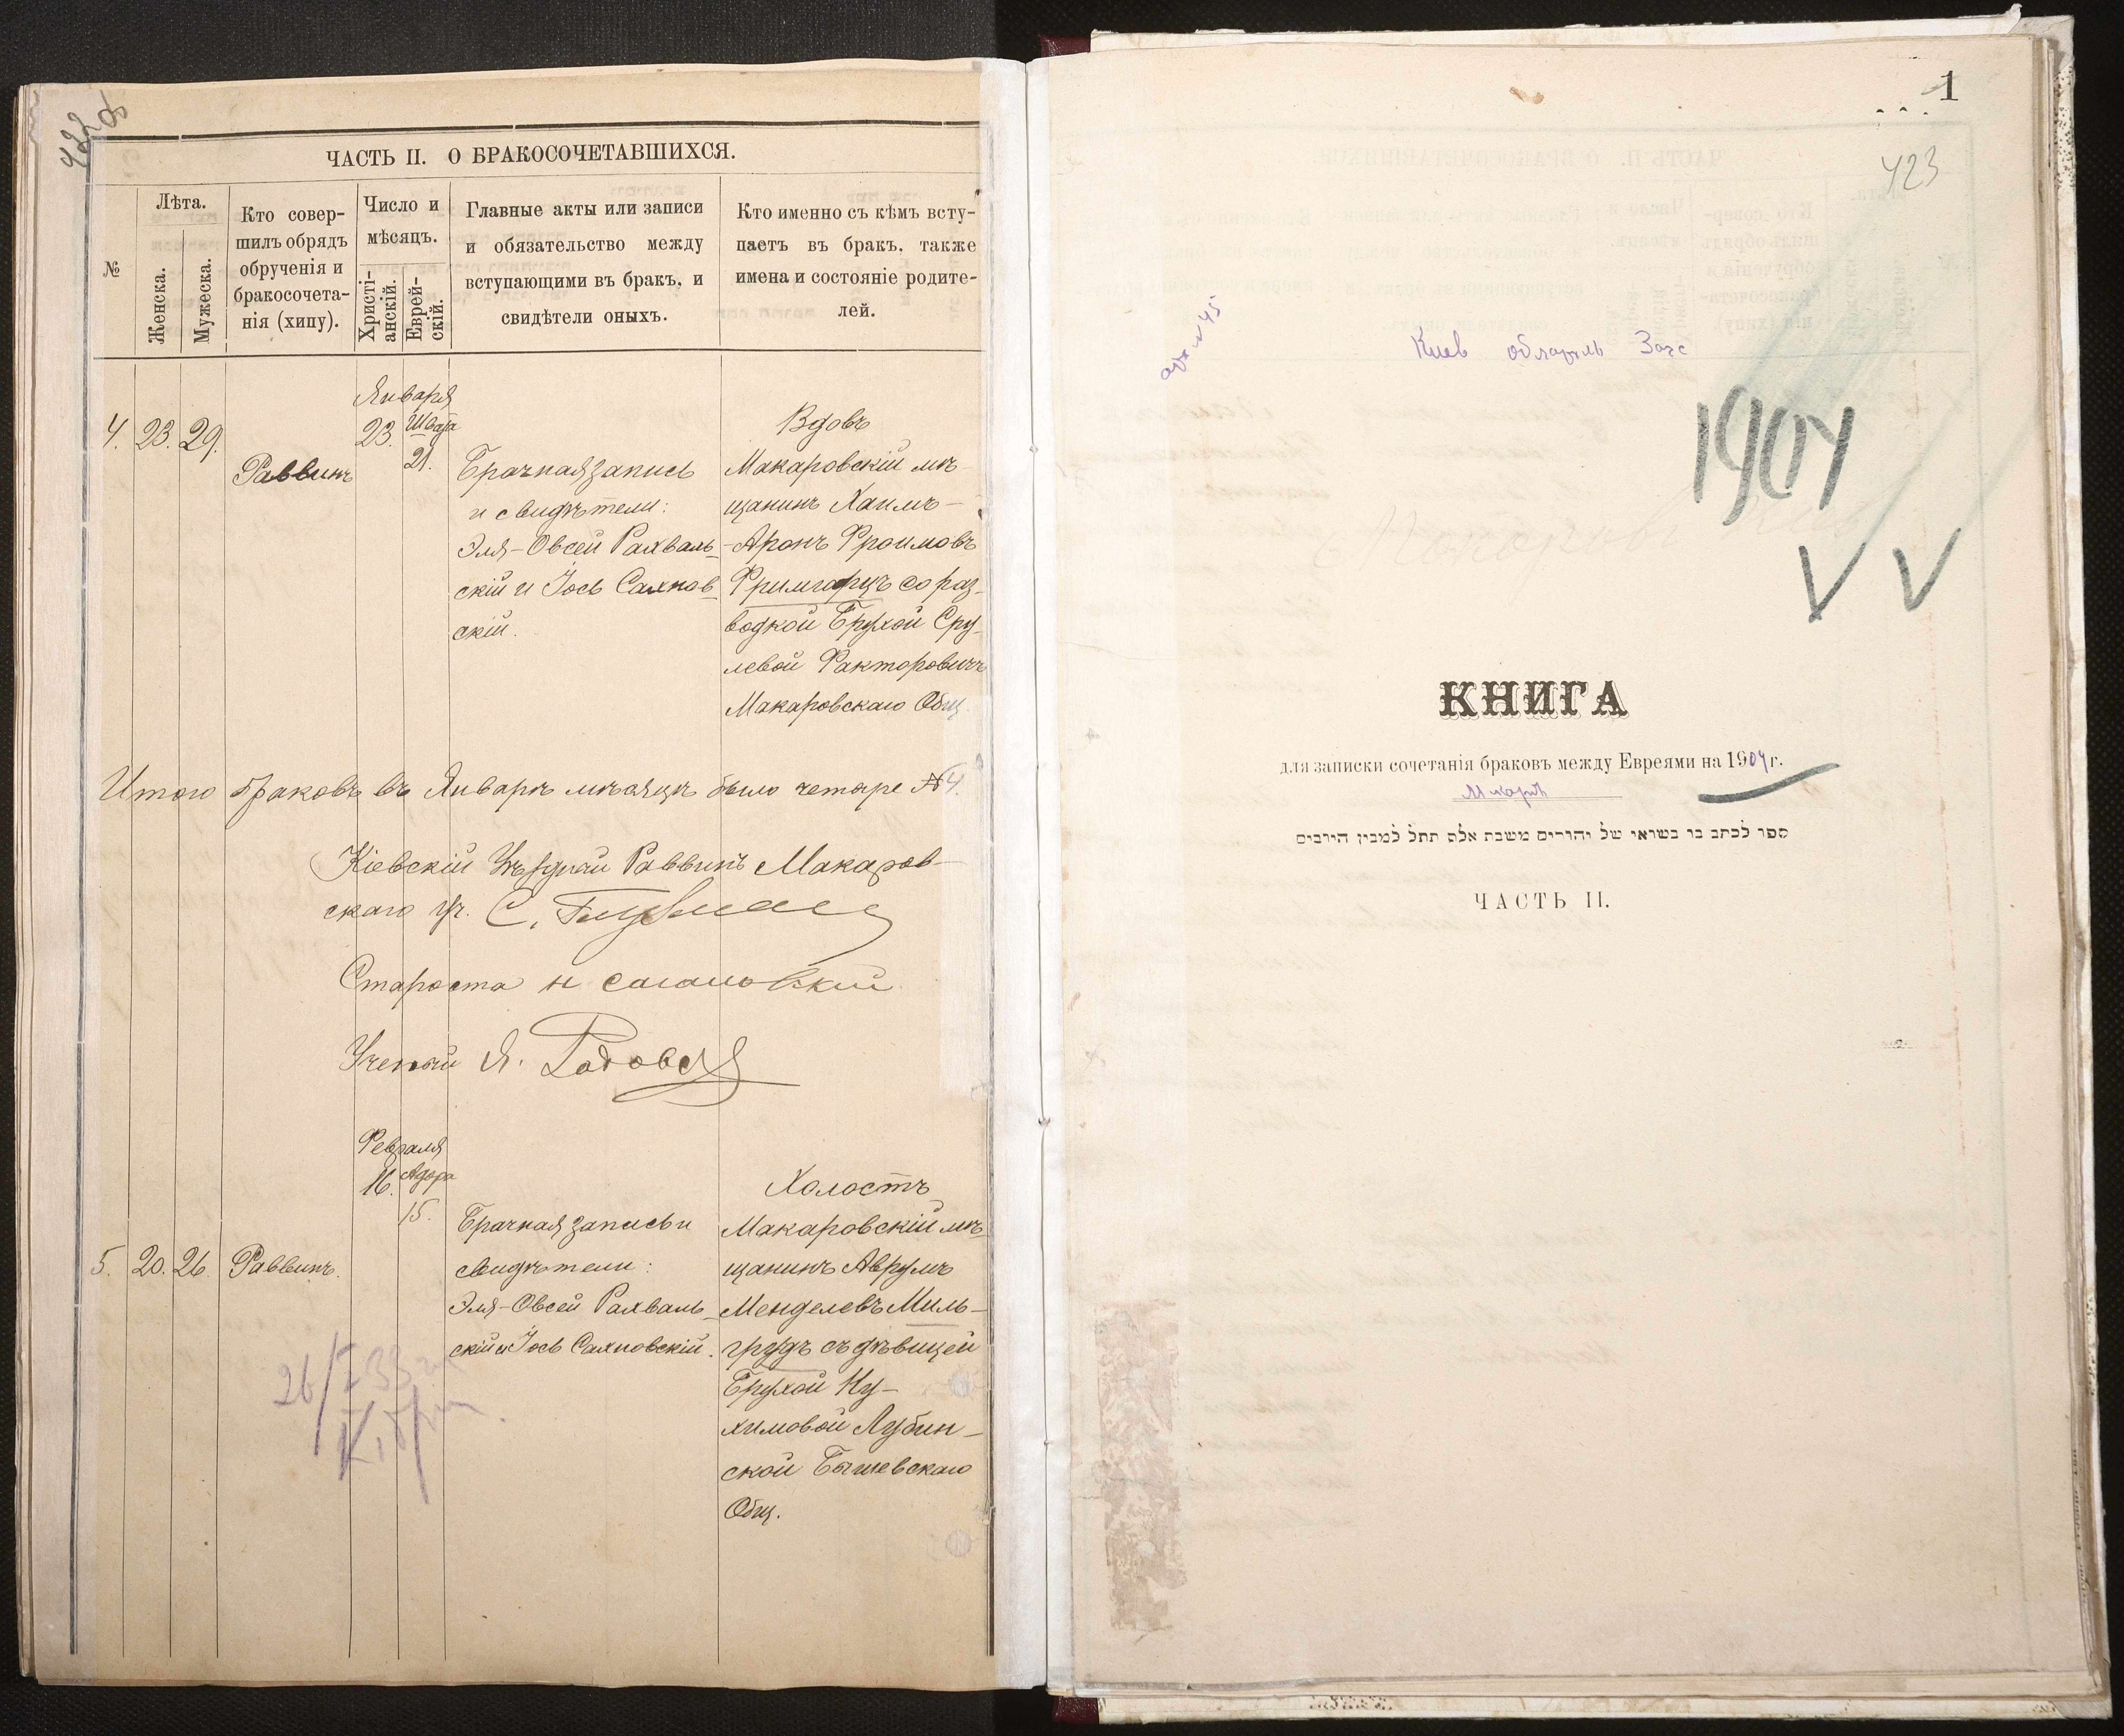 422 об
ЧАСТЬ II. О БРАКОСОЧЕТАВШИХСЯ.
№
Лѣта.
Женска.
Мужеска.
Кто совер-
шилъ обрядъ
обрученія и
бракосочета-
нія (хипу).
Число и
мѣсяцъ.
Христі-
анскій.
Еврей-
скій.
Главные акты или записи
и обязательство между
вступающими въ бракъ, и
свидѣтели оныхъ.
Кто именно съ кѣмъ всту-
паетъ въ бракъ, также
имена и состояніе родите-
лей.
4. 23. 29.
Раввинъ
Января
23.
Швата
21.
Брачная запись
и свидѣтели:
Эля-Овсей Рахваль-
скій и Іось Сахнов-
скій.
Вдовъ
Макаровскій мѣ-
щанинъ Хаимъ-
-Аронъ Фроимовъ
Фримгарцъ со раз-
водкой Брухой Сру-
левой Факторовичъ
Макаровскаго Общ.
Итого браковъ въ Январѣ мѣсяцѣ было четыре №4.
Кіевскій Уѣздный Раввинъ Макаров-
скаго уч. С.
Староста Н
Ученый Я.
Февраля
16.
Адора
15.
5. 20. 26.
Раввинъ.
Брачная запись и
свидѣтели:
Эля-Овсей Рахваль-
скій и Іось Сахновскій.
Холостъ
Макаровскій мѣ-
щанинъ Аврумъ
Менделевъ Миль-
грудъ съ дѣвицей
Брухой Ну-
химовой Лубин-
ской Бышевскаго
Общ.
1
423
арх №45
Киев областль Загс
1904
V V
КНИГА
для записки сочетанія браковъ между Евреями на 1904 г.
ספר לכתב בו בשואי של יהורים משבת אלת תתל למבין היובים
ЧАСТЬ II.